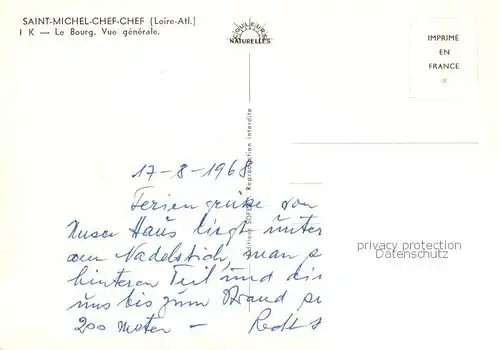 SAINT-MICHEL-CHEF-CHEF (Loire-Atl.)
I K — Le Bourg. Vue générale.
COULEURS
NATURELLES
IMPRIMÉ
EN
FRANCE
Reproduction interdite
17-8-1968
Feriengrüße von
Unser Haus liegt unter
dem Nadelstich, man s
hinteren Teil und die
uns bis zum Strand si
200 meter — Recht s
privacy protection
Datenschutz